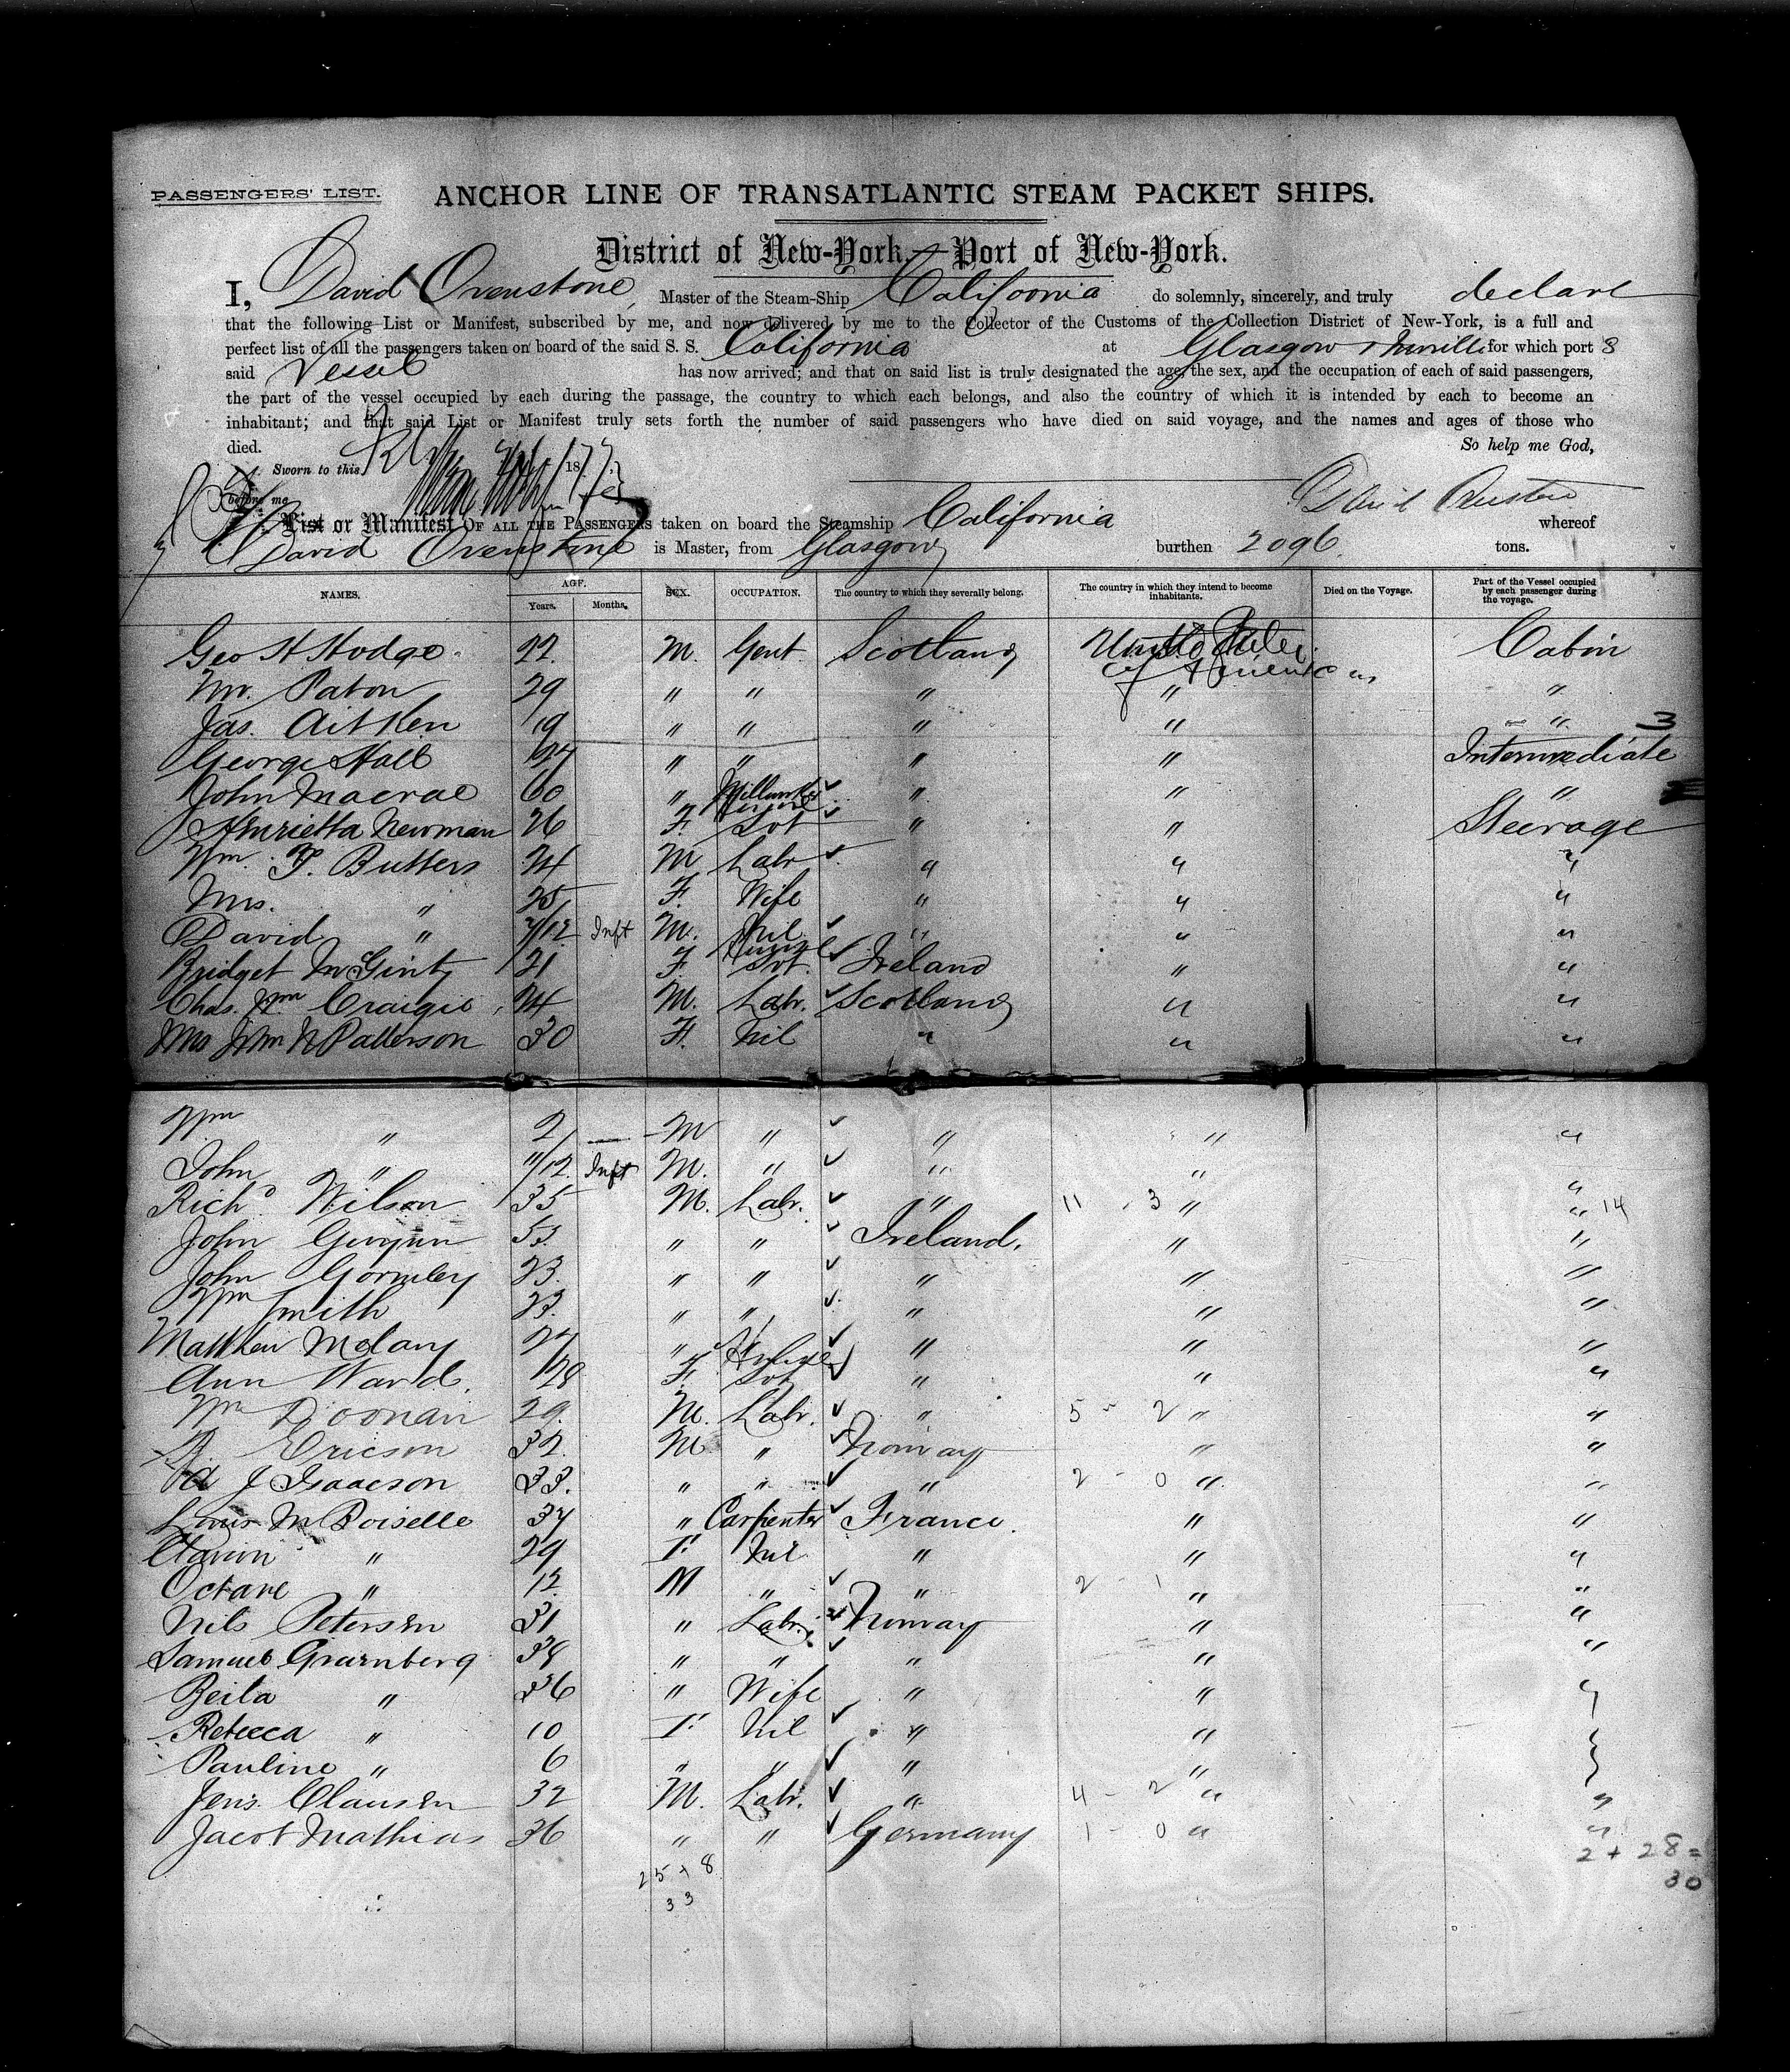 PASSENGERS' LIST. ANCHOR LINE OF TRANSATLANTIC STEAM PACKET SHIPS.
District of New-York.—Port of New-York.
I, David Ovenstone, Master of the Steam-Ship California do solemnly, sincerely, and truly declare
that the following List or Manifest, subscribed by me, and now delivered by me to the Collector of the Customs of the Collection District of New-York, is a full and
perfect list of all the passengers taken on board of the said S. S. California at Glasgow & Moville for which port s
said Vessel has now arrived; and that on said list is truly designated the age, the sex, and the occupation of each of said passengers,
the part of the vessel occupied by each during the passage, the country to which each belongs, and also the country of which it is intended by each to become an
inhabitant; and that said List or Manifest truly sets forth the number of said passengers who have died on said voyage, and the names and ages of those who
died. So help me God,
Sworn to this 1877
before me David Ovenstone
List or Manifest OF ALL THE PASSENGERS taken on board the Steamship California whereof
David Ovenstone is Master, from Glasgow burthen 2096 tons.
NAMES. AGE. Years. Months. SEX. OCCUPATION. The country to which they severally belong. The country in which they intend to become inhabitants. Died on the Voyage. Part of the Vessel occupied by each passenger during the voyage.
Geo H Hodge 22. M. Gent Scotland United States of America Cabin
Mr. Paton 29 " " " " "
Jas. Aitken 19 " " " " " 3
George Hall " " " " Intermediate
John Macrae 60 " " " "
Henrietta Newman 26 F. Svt " " Steerage
Wm. F. Butters 24 M Labr " " "
Mrs. " 25 F. Wife " " "
David " 7/12 Inft M. Nil " " "
Bridget McGinty 21 F. Svt. Ireland " "
Chas. Wm Craigie 24 M. Labr. Scotland " "
Mrs Wm N Patterson 30 F. Nil " " "
Wm " 2 M " " " "
John " 11/12 Inft M. " " " "
Richd Wilson 35 M. Labr. " 11 - 3 " " 14
John 53 " " Ireland. " "
John Gormley 23. " " " " "
Wm Smith 23. " " " " "
Matthew " " " "
Ann Ward. 28 F. Svt " " "
Wm Doonan 29. M. Labr. " 5 - 2 " "
Ericson 32. M " Norway " "
A J Isaacson 33. " " " 2 - 0 " "
Louis M Boiselle 37 " Carpenter France. " "
29 F. Nil " " "
Octave " 12 M " " 2 - 1 " "
Nils Petersen 31 " Labr. Norway " "
Samuel Grurnberg 38 " " " " "
Beila " 36 " Wife " " "
Rebecca " 10 F. Nil " "
Pauline " 6 " " " "
Jens. Clausen 32 M. Labr. " 4 - 2 " "
Jacob Mathias 36 " " Germany 1 - 0 " "
25 + 8 2 + 28 =
33 30